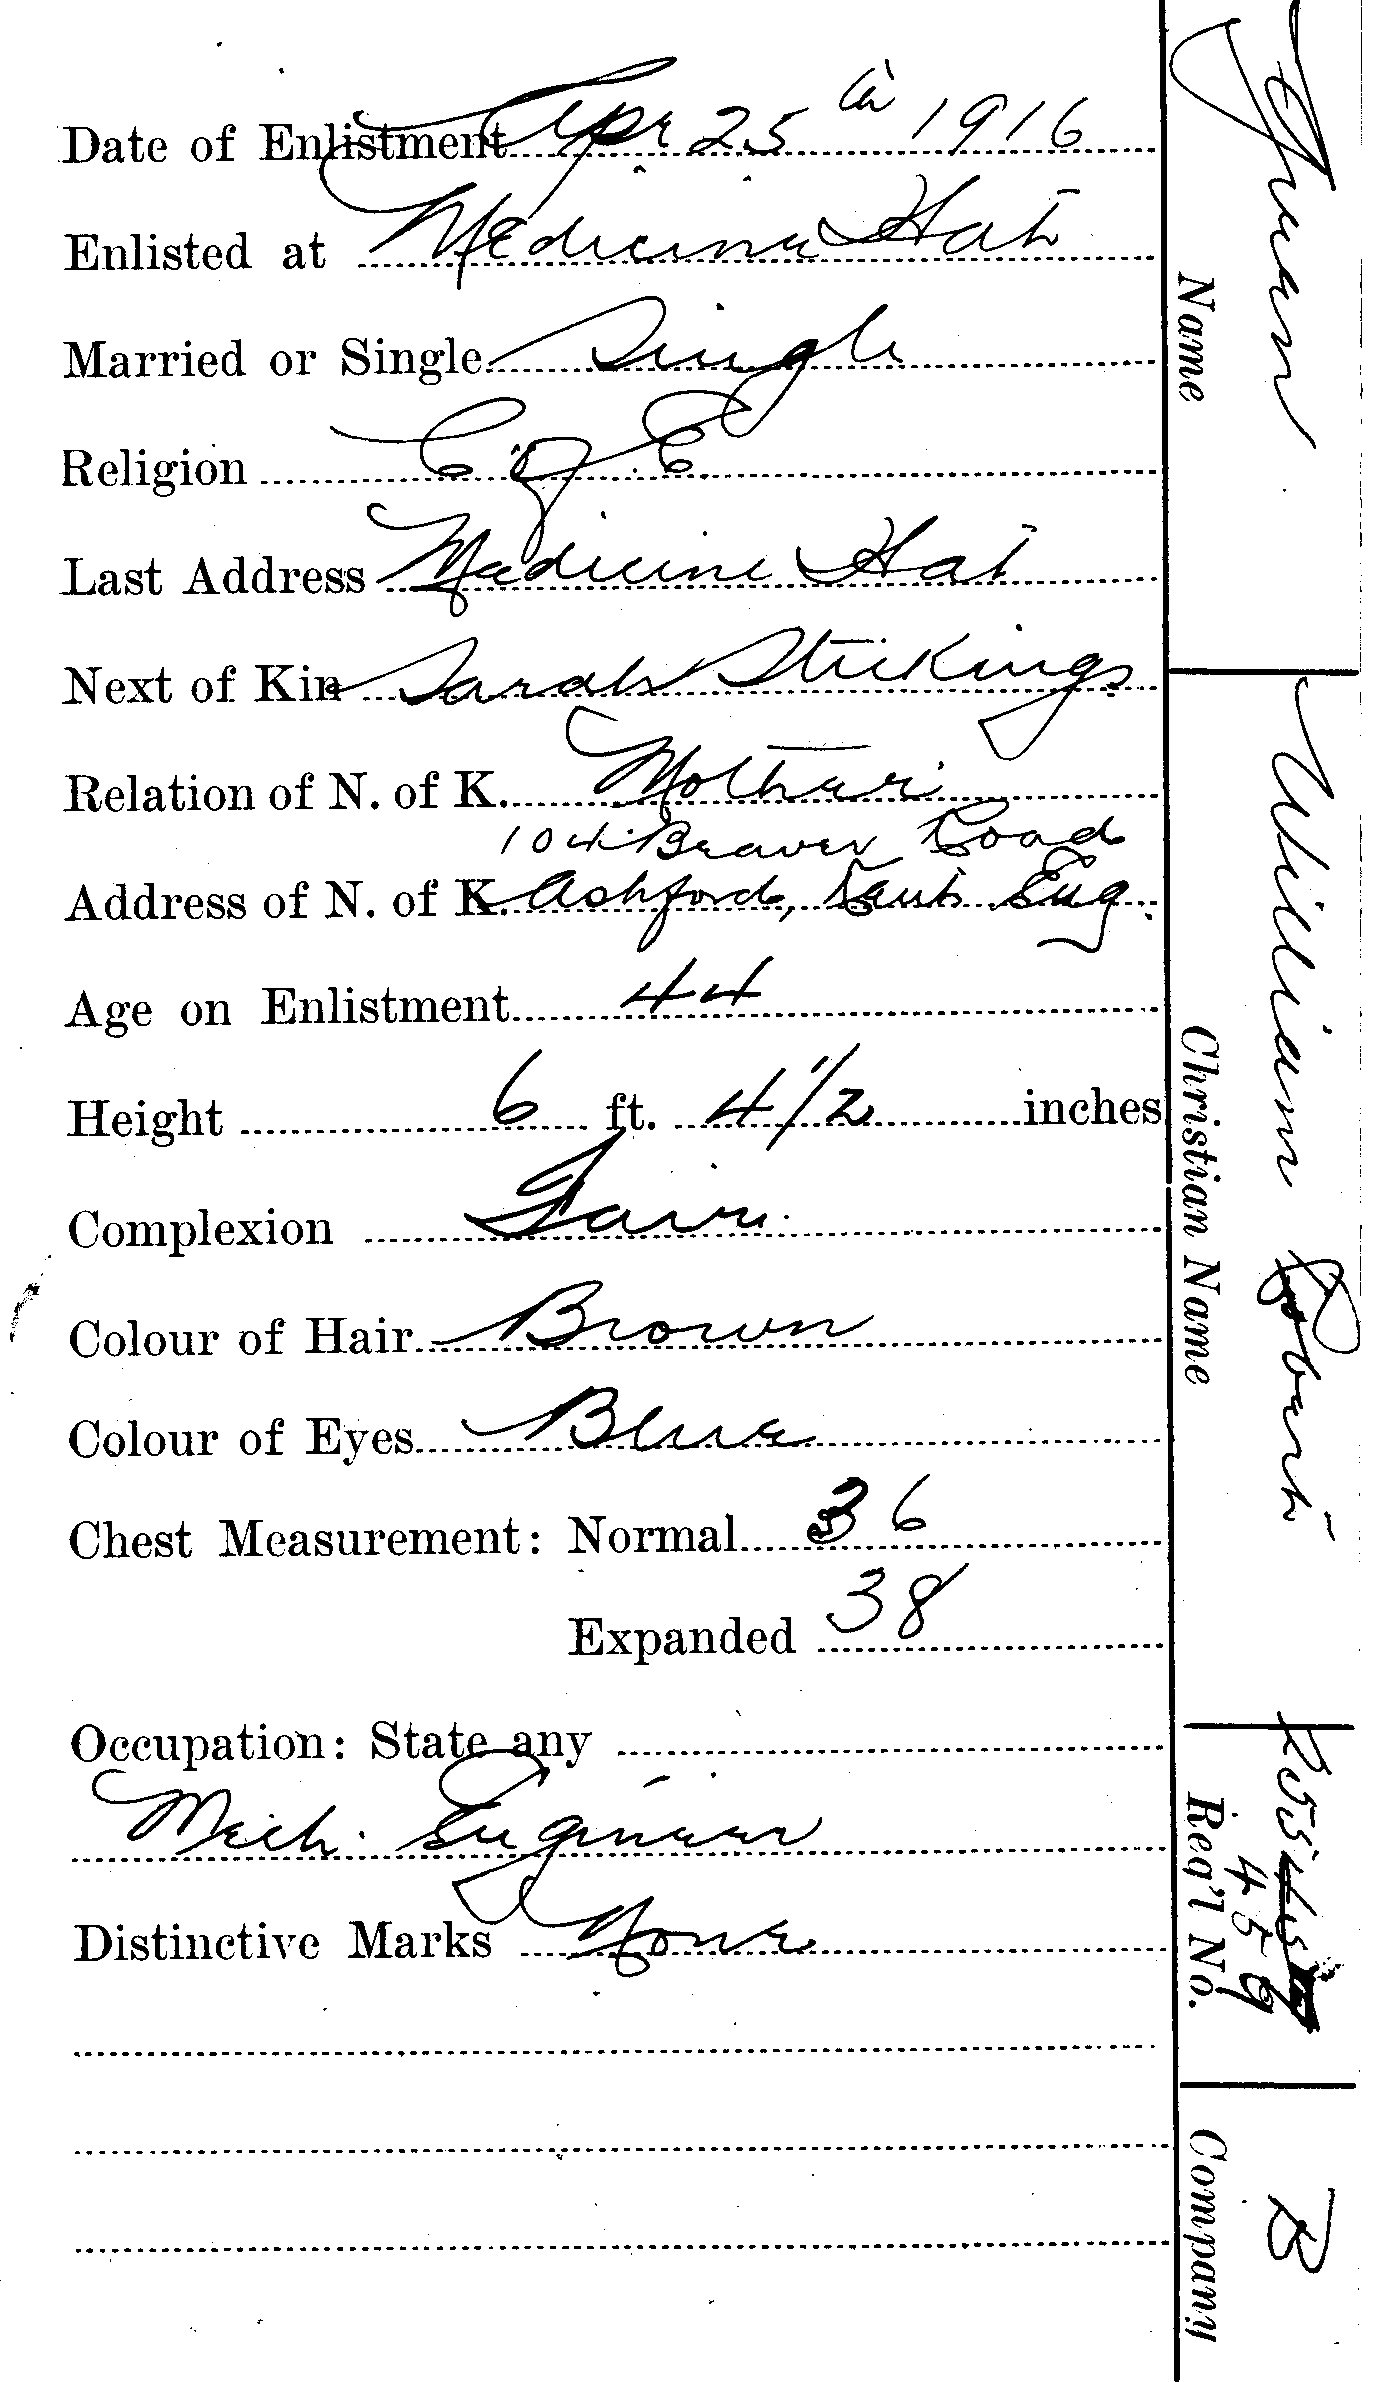 Date of Enlistment Apr 25th 1916
Enlisted at Medicine Hat
Married or Single Single
Religion C of E
Last Address Medicine Hat
Next of Kin Sarah Stickings
Relation of N. of K. Mother
104 Beaver Road
Address of N. of K. Ashford, Kent Eng.
Age on Enlistment 44
Height 6 ft. 4 1/2 inches
Complexion Fair
Colour of Hair Brown
Colour of Eyes Blue
Chest Measurement: Normal 36
Expanded 38
Occupation: State any
Mech. Engineer
Distinctive Marks None
Name
William Robert
Christian Name
Reg'l No.
B
Company